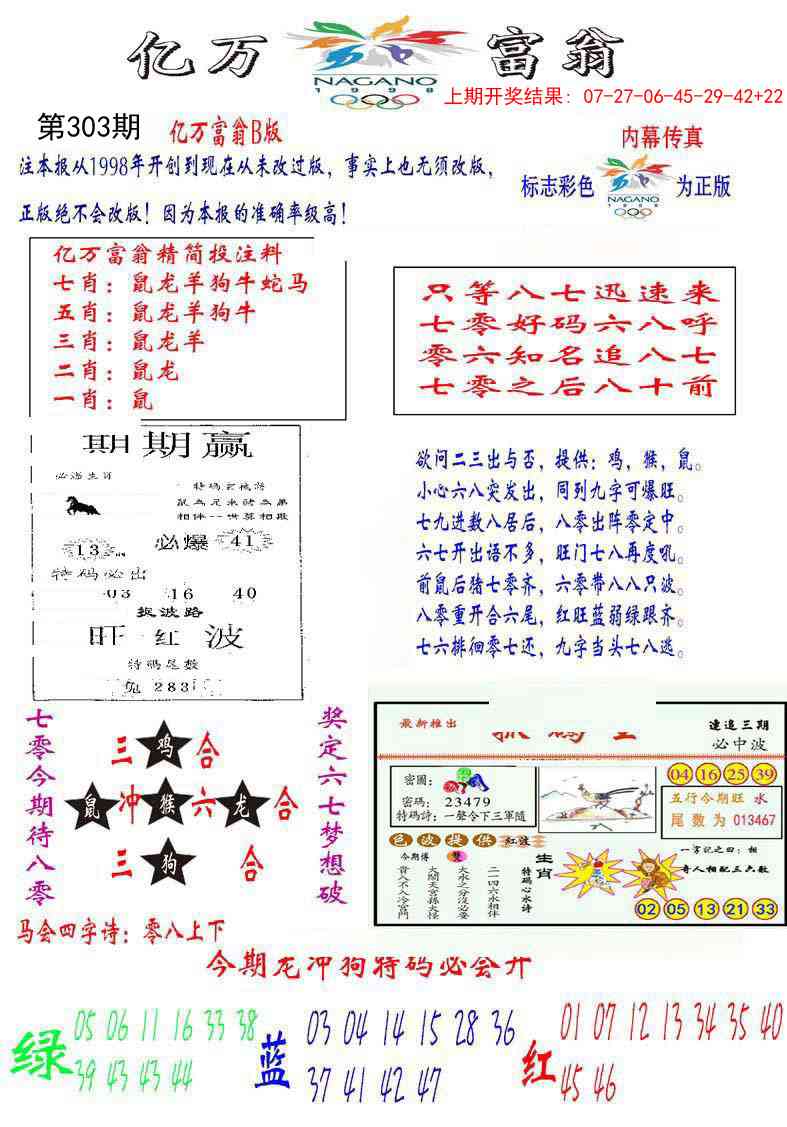 亿万 富翁
NAGANO
1998
上期开奖结果: 07-27-06-45-29-42+22
第303期 亿万富翁B版
内幕传真
注本报从1998年开创到现在从未改过版，事实上也无须改版，
正版绝不会改版！因为本报的准确率级高！
标志彩色 NAGANO 1998 为正版
亿万富翁精简投注料
七肖：鼠龙羊狗牛蛇马
五肖：鼠龙羊狗牛
三肖：鼠龙羊
二肖：鼠龙
一肖：鼠
只等八七迅速来
七零好码六八呼
零六知名追八七
七零之后八十前
期期赢
必爆
13 41
特码必出
03 16 40
捉波路
旺红波
特码尾数
兔 283
欲问二三出与否，提供：鸡，猴，鼠。
小心六八突发出，同列九字可爆旺。
七九进数八居后，八零出阵零定中。
六七开出语不多，旺门七八再度吼。
前鼠后猪七零齐，六零带八八只波。
八零重开合六尾，红旺蓝弱绿跟齐。
七六排徊零七还，九字当头七八逃。
七零今期待八零
三 鸡 合
鼠 冲 猴 六 龙 合
三 狗 合
奖定六七梦想破
马会四字诗：零八上下
最新推出
連追三期
必中波
密圖：
密碼：23479
特碼詩：一聲令下三軍隨
04 16 25 39
五行今期旺 水
尾数为 013467
色波提供 红波
今期傳 雙
生肖
特碼心水诗
二一四六水相伴
大水之分沒必要
大鬧天宮孫大怪
貴人不入冷宮門
一字記之曰：相
奇人相配三六数
02 05 13 21 33
今期龙冲狗特码必会开
绿
05 06 11 16 33 38
39 43 43 44
蓝
03 04 14 15 28 36
37 41 42 47
红
01 07 12 13 34 35 40
45 46